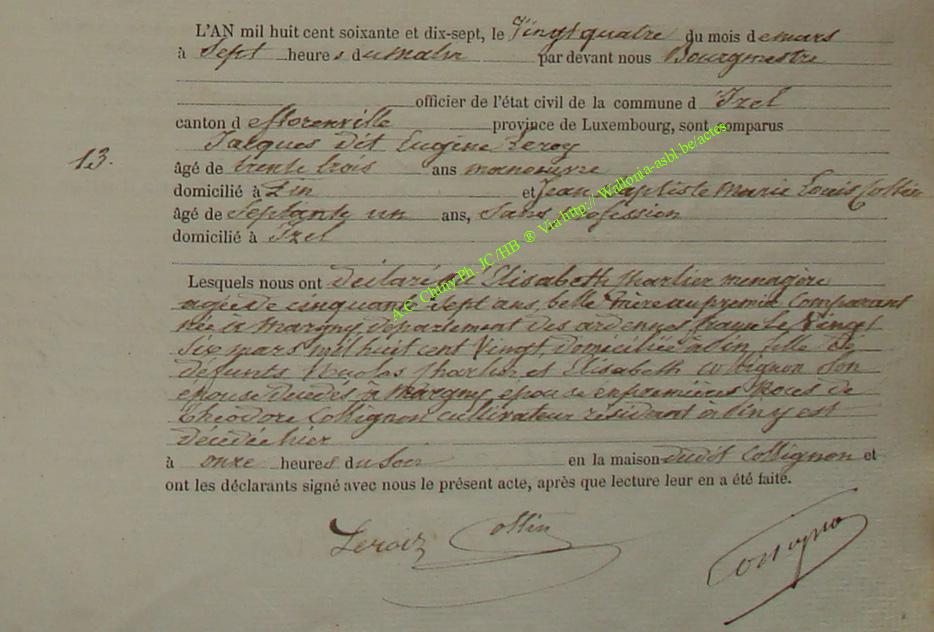 L'AN mil huit cent soixante et dix-sept, le Vingt quatre du mois de mars
à Sept heures du matin par devant nous Bourgmestre
officier de l'état civil de la commune d Izel
canton de florenville province de Luxembourg, sont comparus
Jacques dit Eugène Leroy
13.
âgé de trente trois ans manoeuvre
domicilié à Pin et Jean Baptiste Marie Louis Collin
âgé de Septante un ans, Sans profession
domicilié à Izel
Lesquels nous ont déclaré que Elisabeth Charlier menagère
agée de cinquante Sept ans, belle mère au premier Comparant
née à Margny, département des ardennes, france Le Vingt
Six mars mil huit cent Vingt, domiciliée à Pin fille de
défunts Nicolas Charlier et Elisabeth Collignon Son
épouse décédés à Margny, épouse en premières noces de
Théodore Collignon cultivateur résidant à Pin y est
décédé hier
à onze heures du Soir en la maison dudit Collignon et
ont les déclarants signé avec nous le présent acte, après que lecture leur en a été faite.
Leroix Collin
A.C. Chiny Ph. JC /HB ® Via http:// Wallonia-asbl.be/actes